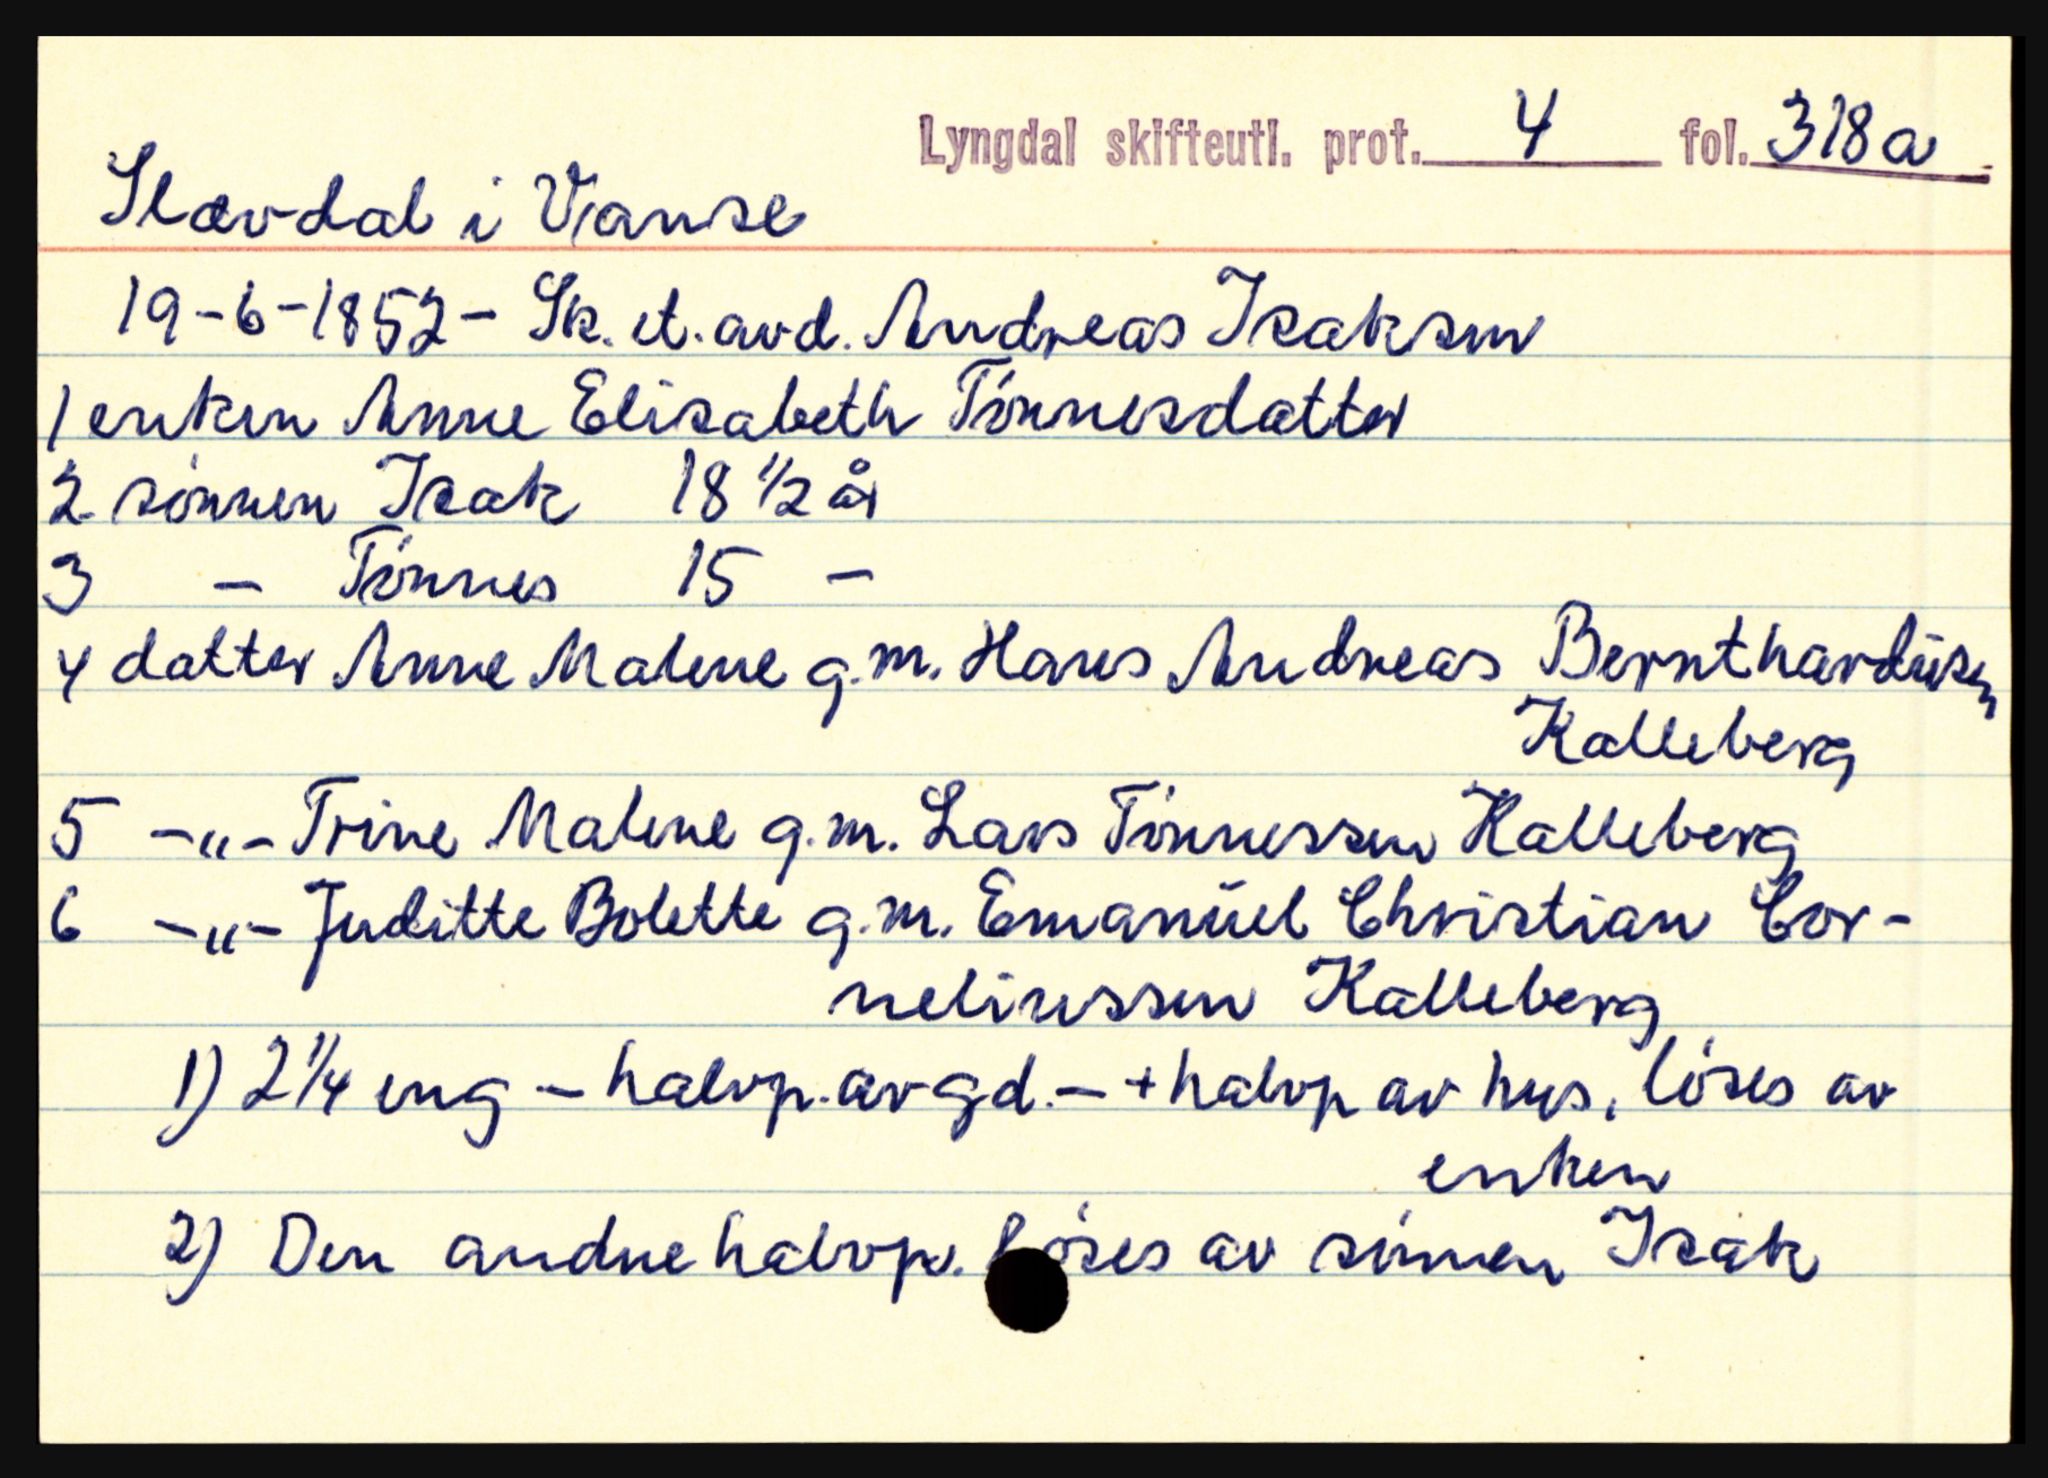 Lyngdal skifteutl. prot. 4 fol. 318a
Slævdal i Vanse
19-6-1852 - Sk. et. avd. Andreas Isaksen
1 enken Anne Elisabeth Tönnesdatter
2 sönnen Isak 18 1/2 år
3 - Tönnes 15 -
4 datter Anne Malene g.m. Hans Andreas Bernthardüsen
Kalleberg
5 -"- Trine Malene g.m. Lars Tönnessen Kalleberg
6 -"- Juditte Bolette g.m. Emanüel Christian Cor-
neliussen Kalleberg
1) 2 1/4 eng - halvp. av gd. - + halvp av hus, löses av
enken
2) Den andne halvp. löses av sönnen Isak